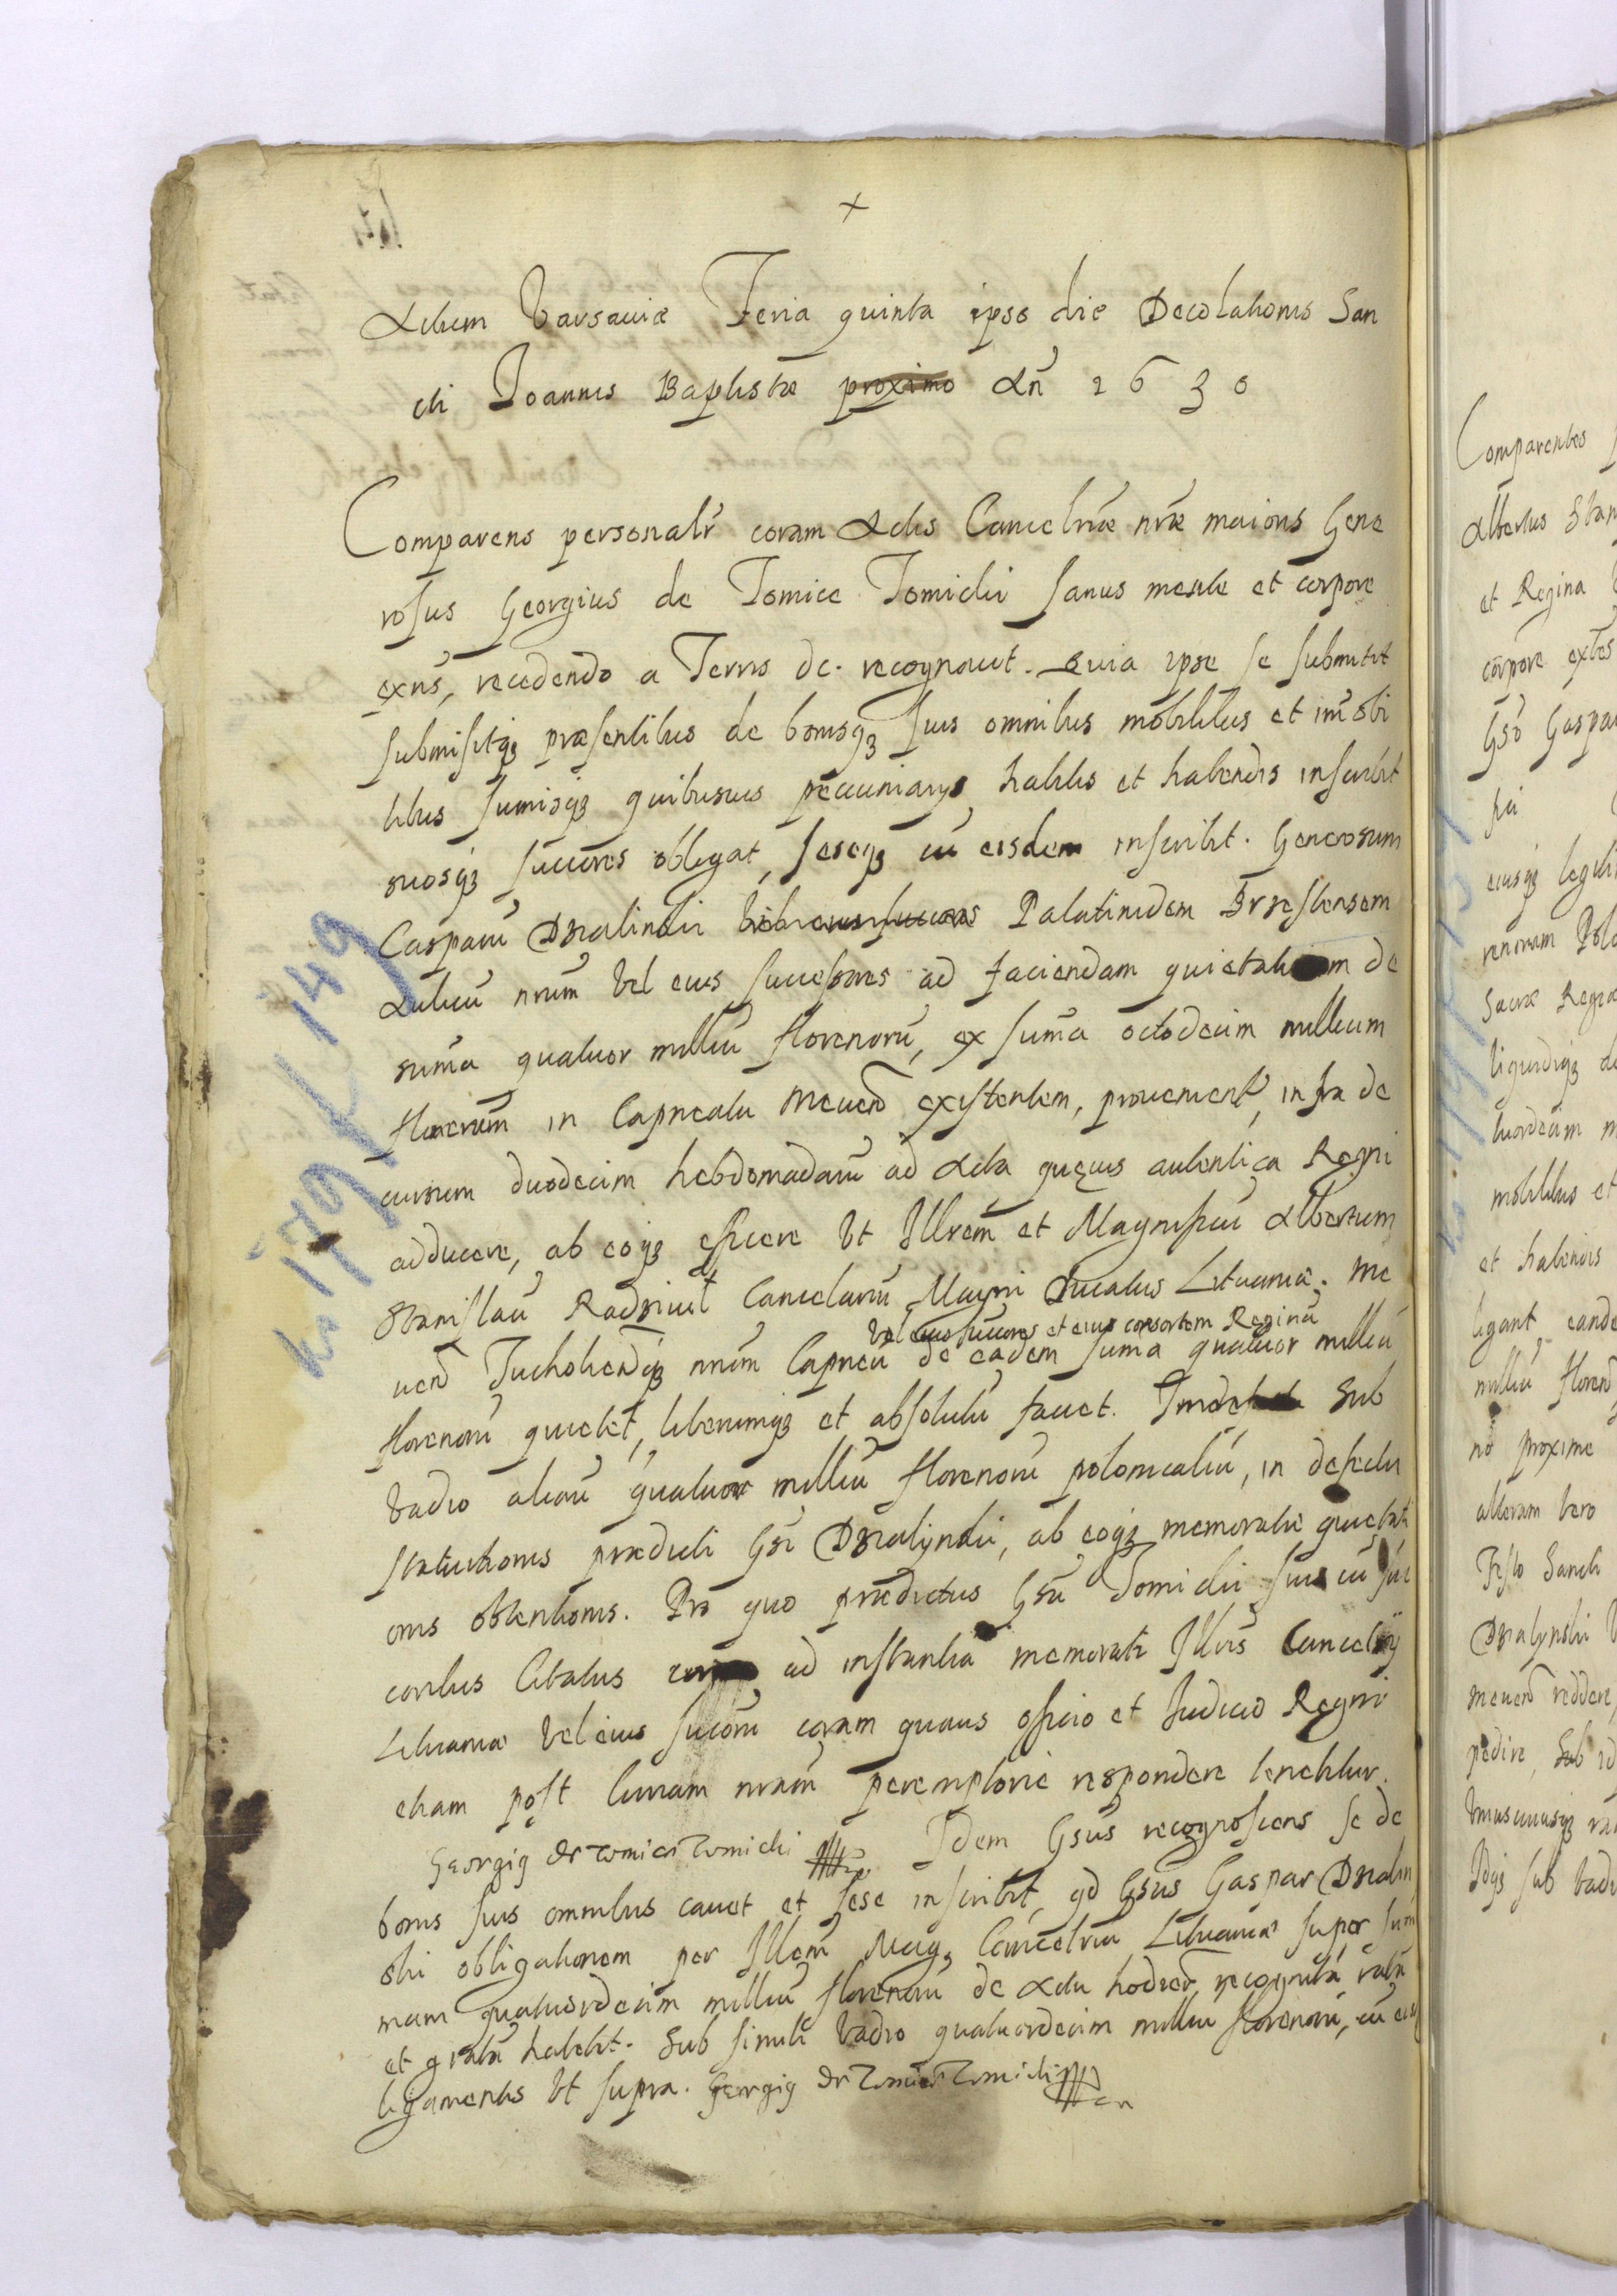 +
Actum Varsauiæ Feria quinta ipso die Decolationis San
cti Joannis Baptistæ proximo An̄ 1630
Comparens personalr̄ coram Actis Cancelriæ nr̄æ maioris Gene
rosus Georgius de Tomice Tomicki sanus mente et corpore
exn̄s, recedendo a Terris &c. recognouit. Quia ipse se submittit
submisitqȝ præsentibus de bonisqȝ suis omnibus mobilibus et im̄obi
libus sum̄isqȝ quibusuis pecuniarys habitis et habendis inscribit
suosqȝ succores obligat, seseqȝ cū eisdem inscribit. Generosum
Casparū Dzialinski Palatinidem Brzestensem
Aulicū nrūm vel eius successores ad faciendam quietationem de
sum̄a quatuor milliū florenorū, ex sum̄a octodecim millium
florenorūm in Capnealu Meuen̄ existentem, prouenient̄, infra de
cursum duodecim hebdomadarū ad Acta quæuis autentica Regni
adducere, ab eoqȝ efficere vt Illrem̄ et Magnificū Albertum
Stanislaū Radziuil Cancelariū Magni Ducatus Lituaniæ. Me
vel eius succores et eius consortem Reginā
uen̄ Tucholien̄qȝ nrūm Capneū de eadem sum̄a quatuor milliū
florenorū quietet, liberumqȝ et absolutū faciet. sub
vadio aliorū quatuor milliū florenorū polonicaliū, in defectu
statutionis prædicti Gsi Dzialynski, ab eoqȝ memoratæ quietati
onis obtentionis. Pro quo prædictus Gsū Tomicki suis cū suc
coribus Citatus ad instantiā memorati Illris Cancelrij
Lituaniæ vel eius succorū coram quouis officio et Iudicio Regni
etiam post curiam nrām peremptorie respondere tenebitur.
Georgiꝯ de Tomice Tomicki Idem Gsūs recognoscens se de
bonis suis omnibus cauet et sese inscribit, qd Gsūs Gaspar Dzialin
ski obligationem per Illrem̄ Magȝ Cancelriū Lituaniæ super sum
mam quatuordecim milliū florenorū de Actu hodier̄ recognitā ratā
et gratā habebit. Sub simili vadio quatuordecim milliū florenorū, cū eisd
ligamentis vt supra. Georgiꝯ de Tomice Tomicki
k. 149
k. 179
Comparentes
Albertus Stan
et Regina
corpore extes
Gsō Gaspar
eiusqȝ legiti
renorum Polo
Sacræ Regiæ
liquidiqȝ de
tuordecim m
mobilibus et
et habendis
ligant eande
milliū floren̄
no proxime
alteram vero
Festo Sancti
Dzialynski
meuen̄ reddere,
pedire, sub
sub vadio